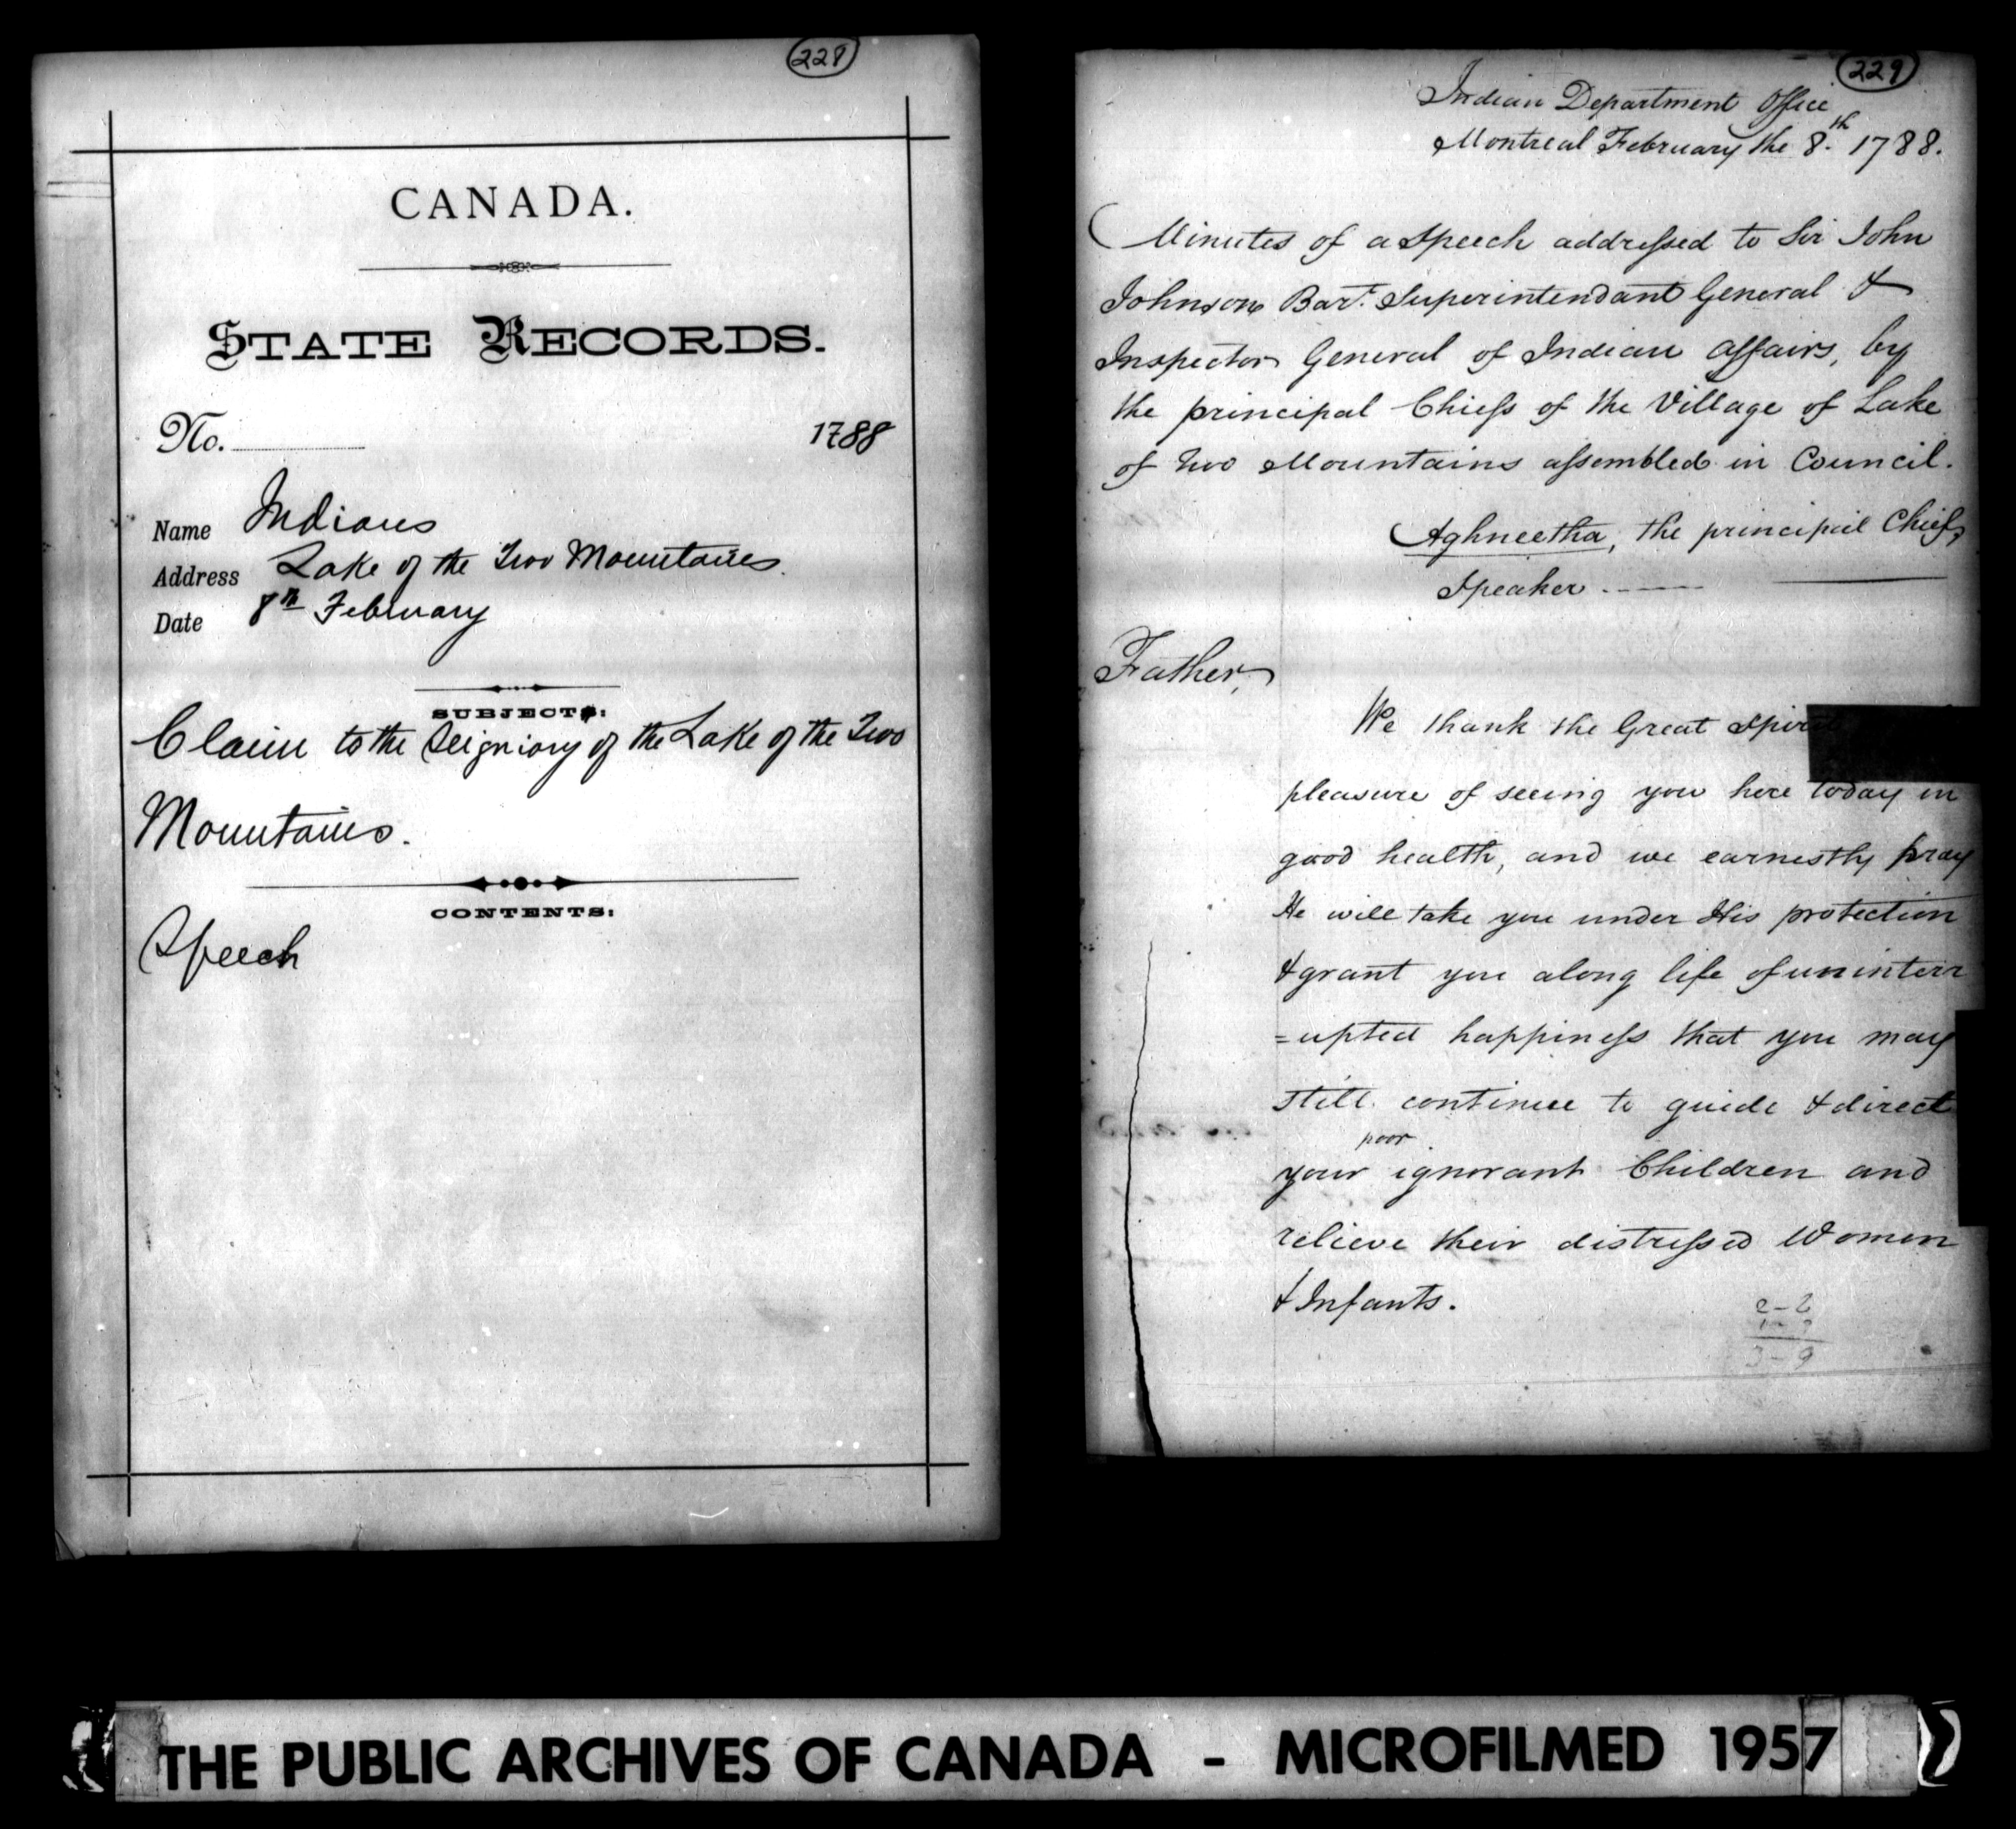 228
CANADA.
STATE RECORDS.
No. 1788
Name Indians
Address Lake of the Two Mountains.
Date 8th February
SUBJECTS:
Claim to the Seigniory of the Lake of the Two
Mountains.
CONTENTS:
Speech
229
Indian Department Office
Montreal February the 8th. 1788.
Minutes of a Speech addressed to Sir John
Johnson Bart. Superintendant General &
Inspector General of Indian Affairs, by
the principal Chiefs of the Village of Lake
of Two Mountains assembled in Council.
Aghneetha, the principal Chief,
Speaker
Father,
We thank the Great Spirit
pleasure of seeing you here today in
good health, and we earnestly pray
He will take you under His protection
& grant you a long life of uninterr
=upted happiness that you may
still continue to guide & direct
poor
your ignorant Children and
relieve their distressed Women
& Infants.
3-9
THE PUBLIC ARCHIVES OF CANADA - MICROFILMED 1957